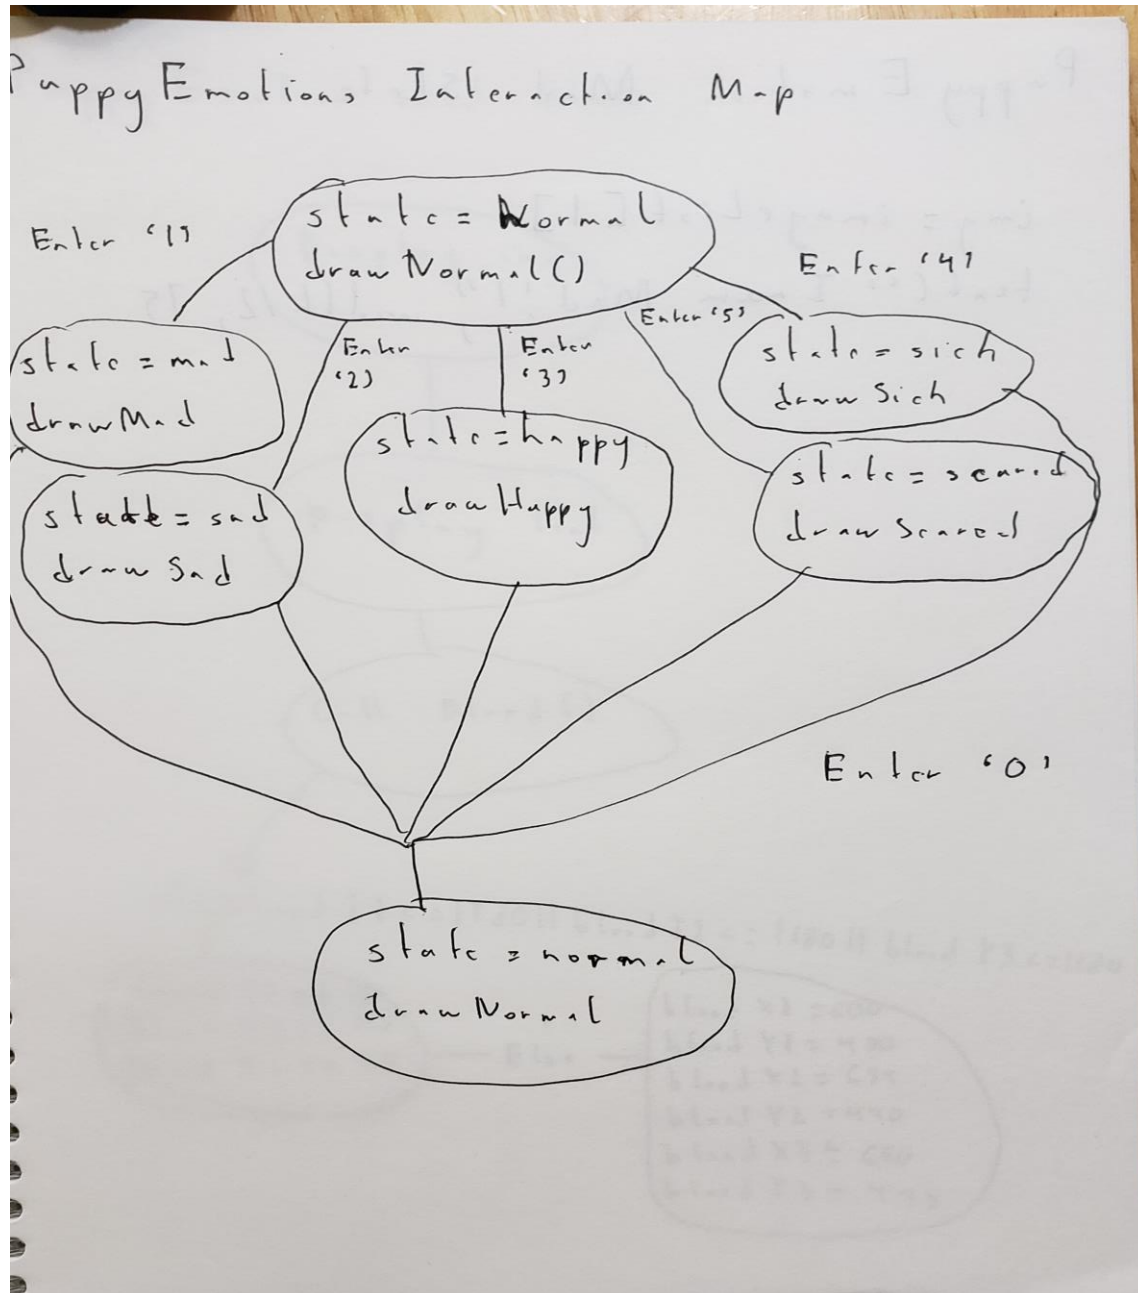 Puppy Emotions Interaction Map
state = Normal
drawNormal()
Enter '1'
Enter '4'
Enter '5'
Enter
'2'
Enter
'3'
state = mad
drawMad
state = sick
drawSick
state = happy
drawHappy
state = scared
drawScared
state = sad
drawSad
Enter '0'
state = normal
drawNormal